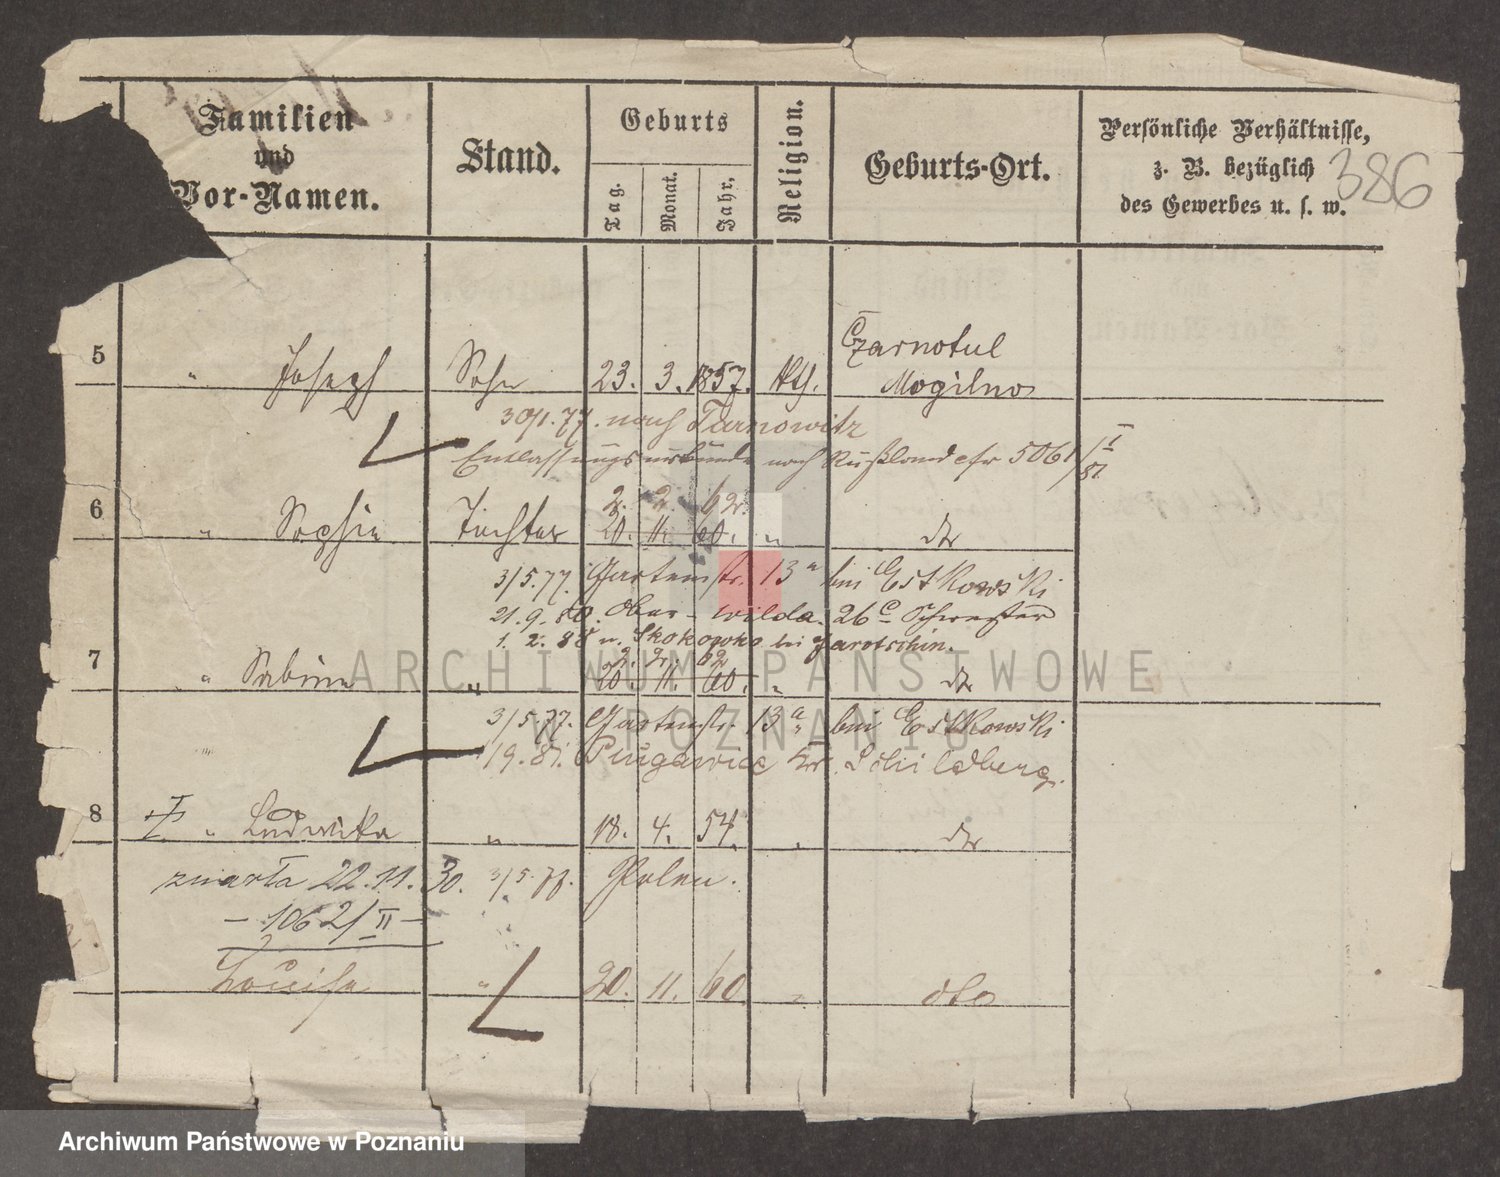 Familien
und
Vor-Namen.
Stand.
Geburts
Tag.
Monat.
Jahr.
Religion.
Geburts-Ort.
Persönliche Verhältnisse,
z. B. bezüglich
des Gewerbes u. s. w.
386
Czarnotul
5 " Joseph Sohn 23. 3. 1857. kth. Mogilno
30/1. 77. nach Tarnowitz
Entlassungsurkunde nach Rußland cfr 5061/I
81
2. 2. 62.
6 " Sophie Tochter 20. 11. 60. " dto
3/5. 77. Gartenstr. 13a bei Estkowski
21. 9. 80. Ober-Wilda. 26c Schwester
1. 2. 88 n. Skokowko bei Jarotschin.
2. 2. 62
7 " Sabina " 20. 11. 60. " dto
3/5. 77. Gartenstr. 13a bei Estkowski
/9. 81. Pingawice Kr. Schildberg.
8 " Ludwika " 18. 4. 54. " dto
zmarła 22. 11. 30. 3/5. 77. Polen.
- 1062/II -
Louisa " 20. 11. 60. " dto
ARCHIWUM PAŃSTWOWE
W POZNANIU
Archiwum Państwowe w Poznaniu